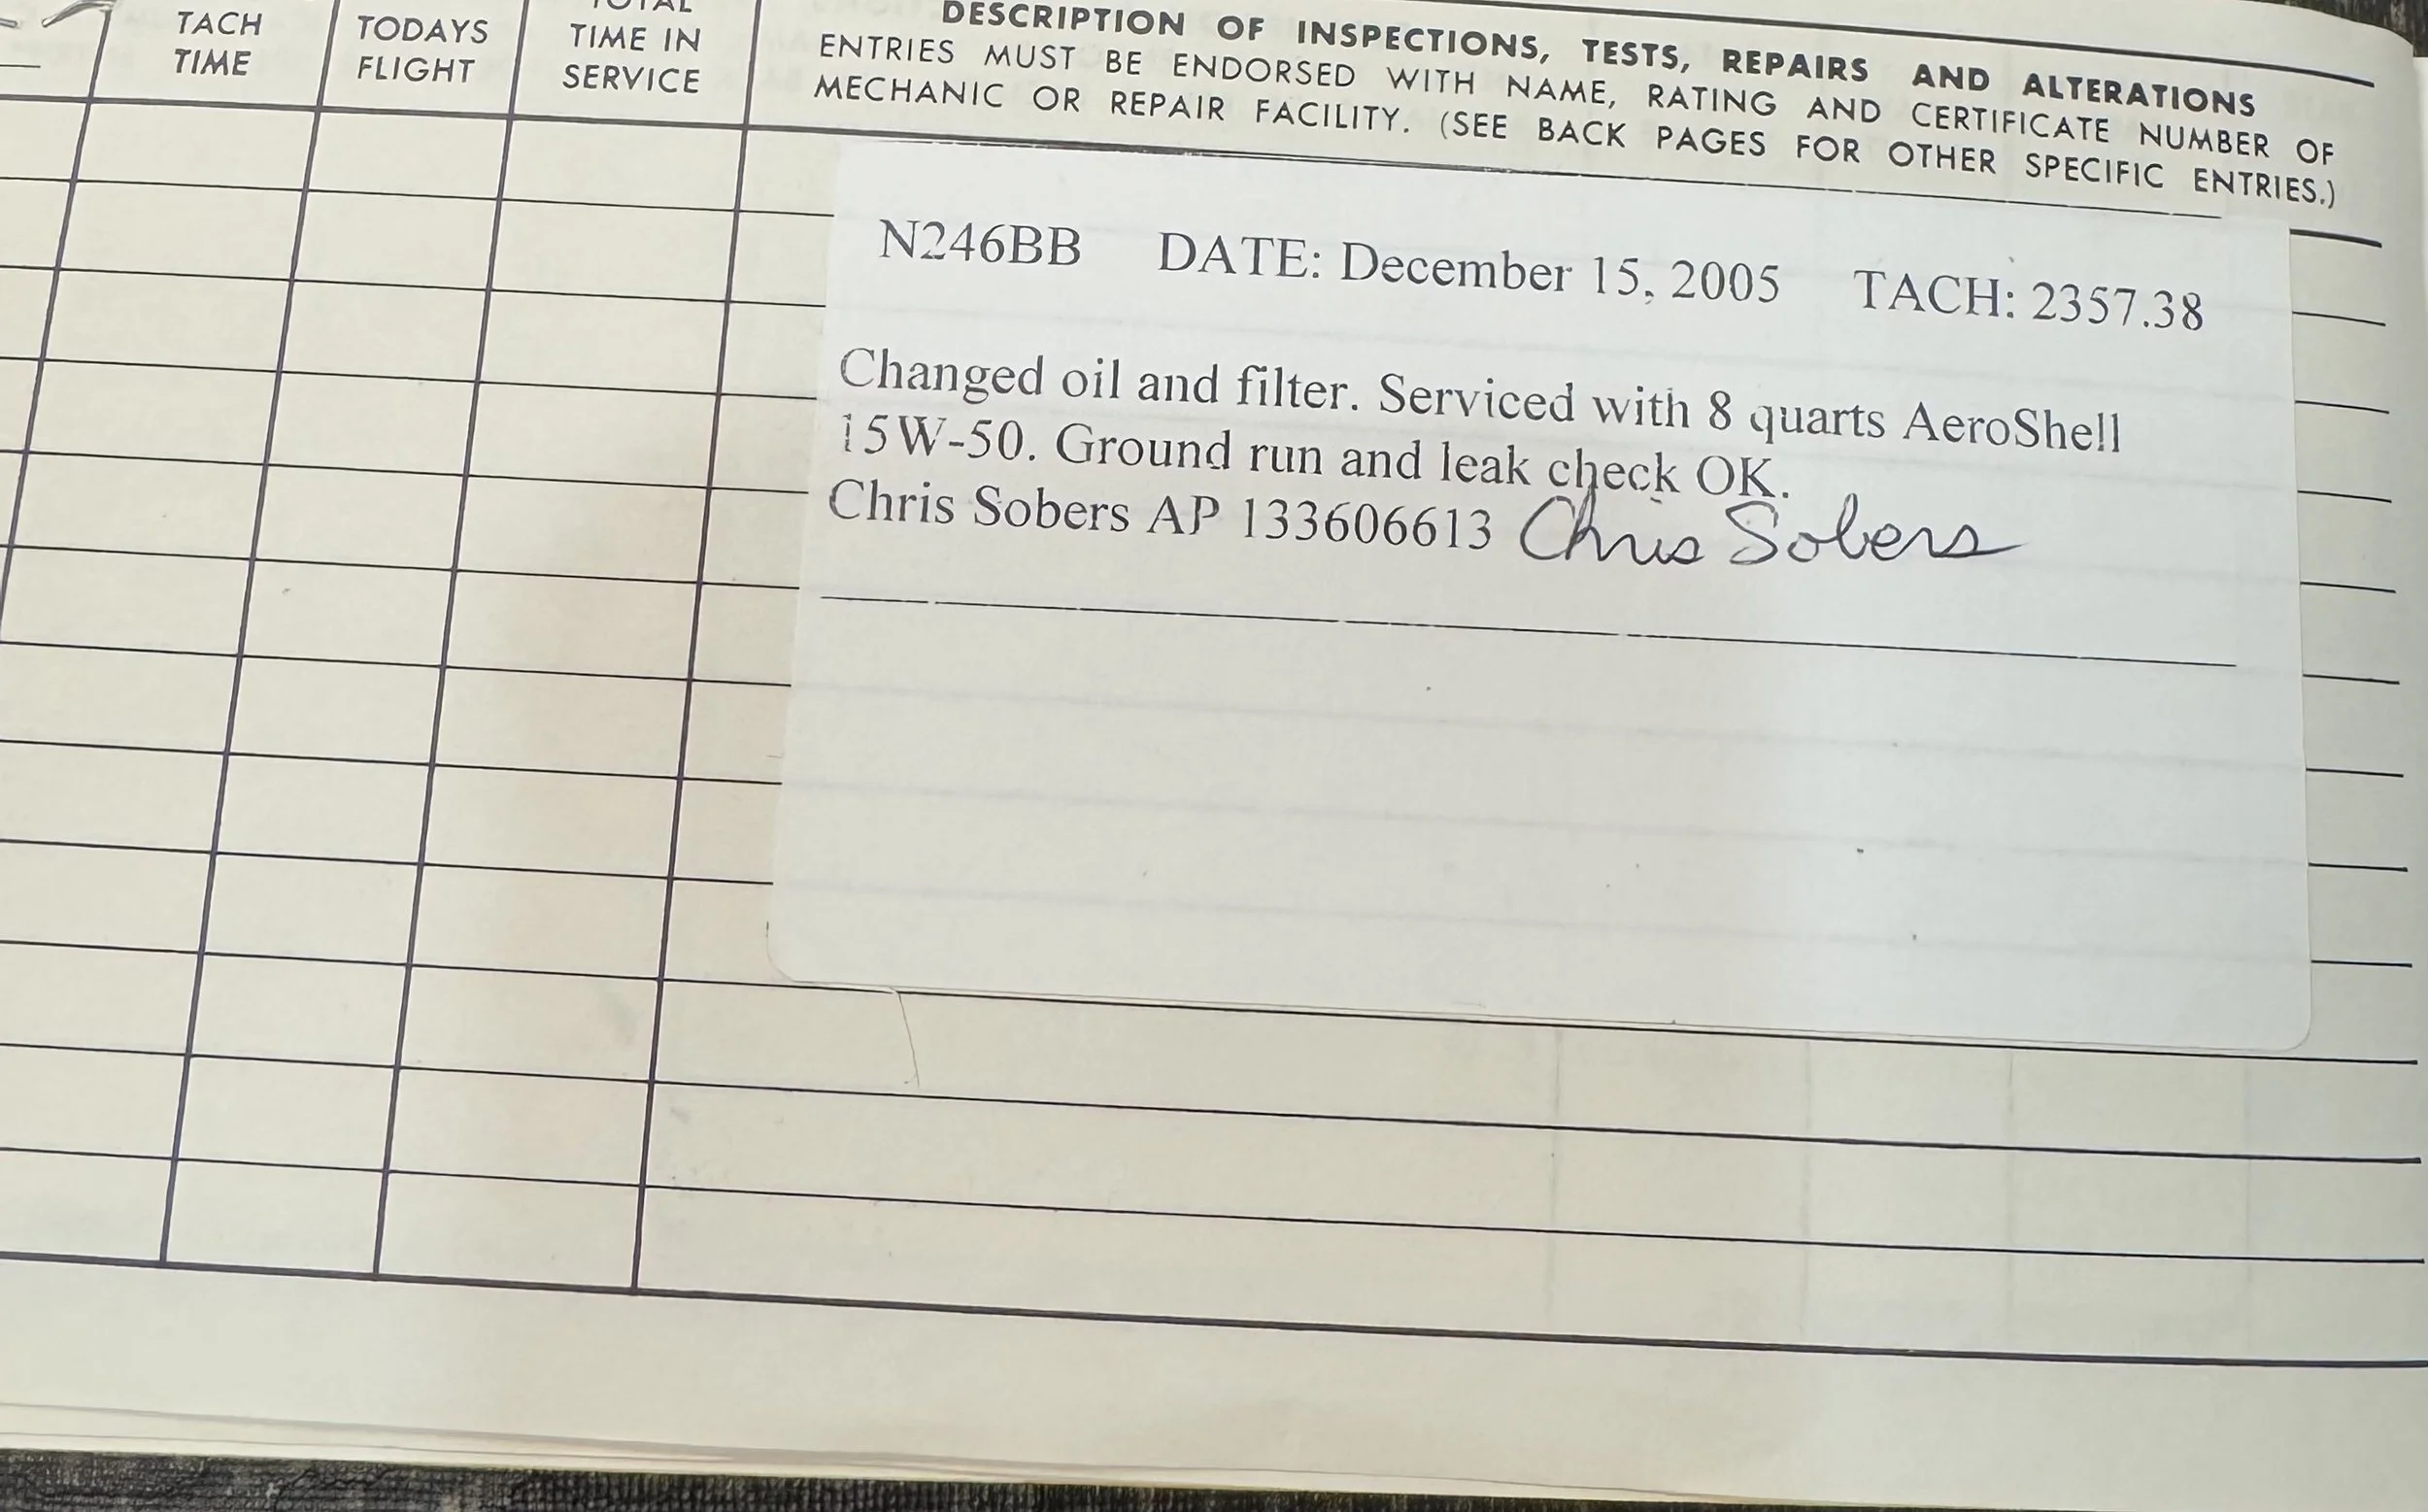 TACH
TIME
TODAYS
FLIGHT
TOTAL
TIME IN
SERVICE
DESCRIPTION OF INSPECTIONS, TESTS, REPAIRS AND ALTERATIONS
ENTRIES MUST BE ENDORSED WITH NAME, RATING AND CERTIFICATE NUMBER OF
MECHANIC OR REPAIR FACILITY. (SEE BACK PAGES FOR OTHER SPECIFIC ENTRIES.)
N246BB DATE: December 15, 2005 TACH: 2357.38
Changed oil and filter. Serviced with 8 quarts AeroShell
15W-50. Ground run and leak check OK.
Chris Sobers AP 133606613 Chris Sobers